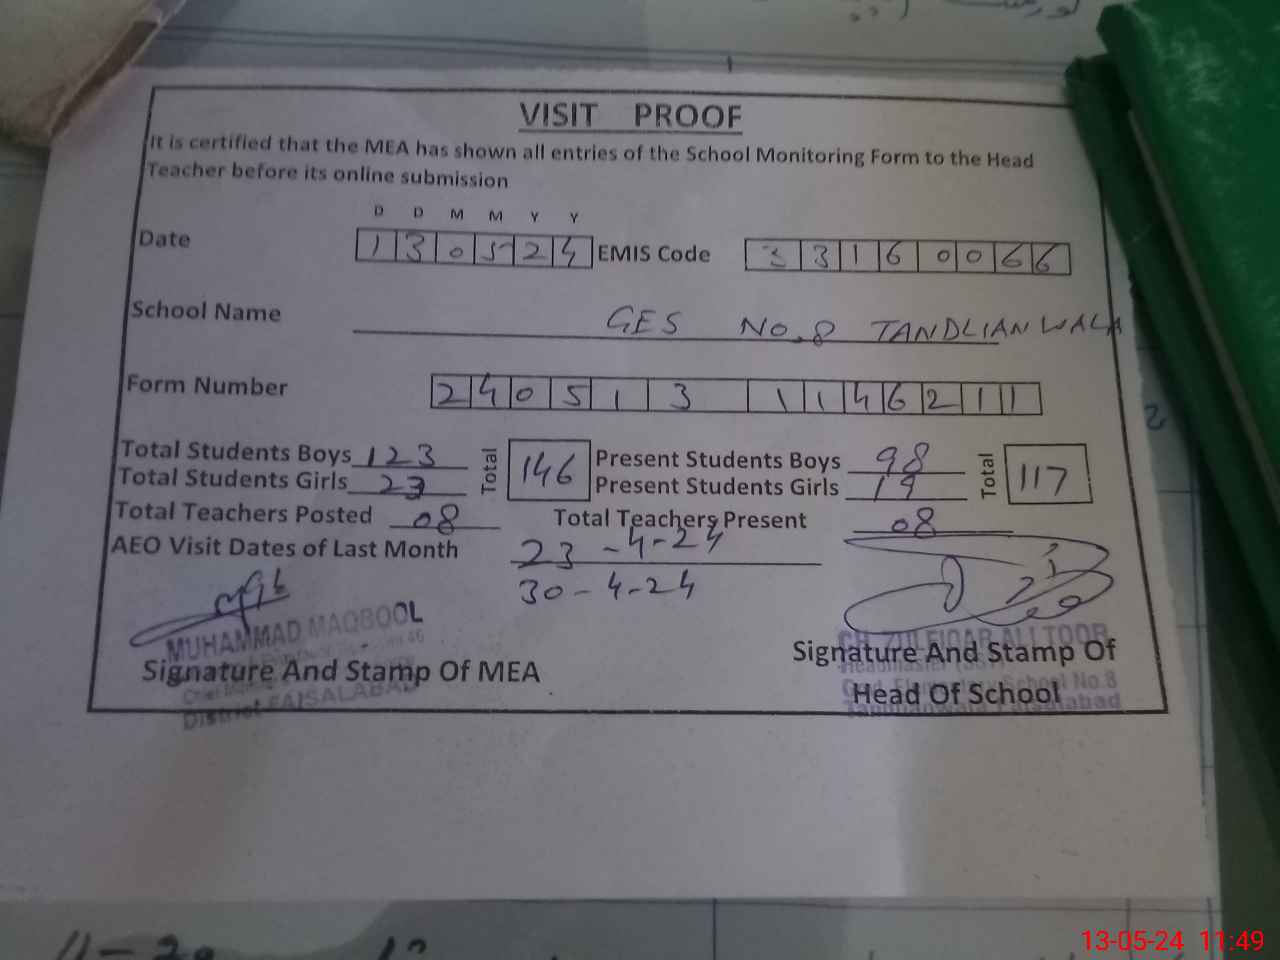 VISIT PROOF
It is certified that the MEA has shown all entries of the School Monitoring Form to the Head
Teacher before its online submission
D D M M Y Y
Date 1 3 0 5 2 4 EMIS Code 3 3 1 6 0 0 6 6
School Name GES No.8 TANDLIANWALA
Form Number 2 4 0 5 1 3 1 1 4 6 2 1 1
Total Students Boys 123 Total 146 Present Students Boys 98 Total 117
Total Students Girls 23 Present Students Girls 19
Total Teachers Posted 08 Total Teachers Present 08
AEO Visit Dates of Last Month 23-4-24
30-4-24
MUHAMMAD MAQBOOL
Signature And Stamp Of MEA
District FAISALABAD
CH. ZULFIQAR ALI TOOR
Signature And Stamp Of
Headmaster
Head Of School
Elementary School No.8
13-05-24 11:49